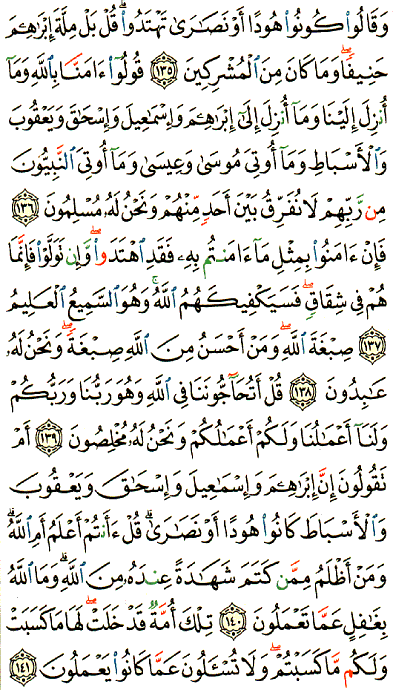 وَقَالُوا۟ كُونُوا۟ هُودًا أَوْ نَصَـٰرَىٰ تَهْتَدُوا۟ ۗ قُلْ بَلْ مِلَّةَ إِبْرَٰهِـۧمَ
حَنِيفًا ۖ وَمَا كَانَ مِنَ ٱلْمُشْرِكِينَ ١٣٥ قُولُوٓا۟ ءَامَنَّا بِٱللَّهِ وَمَآ
أُنزِلَ إِلَيْنَا وَمَآ أُنزِلَ إِلَىٰٓ إِبْرَٰهِـۧمَ وَإِسْمَـٰعِيلَ وَإِسْحَـٰقَ وَيَعْقُوبَ
وَٱلْأَسْبَاطِ وَمَآ أُوتِىَ مُوسَىٰ وَعِيسَىٰ وَمَآ أُوتِىَ ٱلنَّبِيُّونَ
مِن رَّبِّهِمْ لَا نُفَرِّقُ بَيْنَ أَحَدٍ مِّنْهُمْ وَنَحْنُ لَهُۥ مُسْلِمُونَ ١٣٦
فَإِنْ ءَامَنُوا۟ بِمِثْلِ مَآ ءَامَنتُم بِهِۦ فَقَدِ ٱهْتَدَوا۟ ۖ وَّإِن تَوَلَّوْا۟ فَإِنَّمَا
هُمْ فِى شِقَاقٍ ۖ فَسَيَكْفِيكَهُمُ ٱللَّهُ ۚ وَهُوَ ٱلسَّمِيعُ ٱلْعَلِيمُ
١٣٧ صِبْغَةَ ٱللَّهِ ۖ وَمَنْ أَحْسَنُ مِنَ ٱللَّهِ صِبْغَةً ۖ وَنَحْنُ لَهُۥ
عَـٰبِدُونَ ١٣٨ قُلْ أَتُحَآجُّونَنَا فِى ٱللَّهِ وَهُوَ رَبُّنَا وَرَبُّكُمْ
وَلَنَآ أَعْمَـٰلُنَا وَلَكُمْ أَعْمَـٰلُكُمْ وَنَحْنُ لَهُۥ مُخْلِصُونَ ١٣٩ أَمْ
تَقُولُونَ إِنَّ إِبْرَٰهِـۧمَ وَإِسْمَـٰعِيلَ وَإِسْحَـٰقَ وَيَعْقُوبَ
وَٱلْأَسْبَاطَ كَانُوا۟ هُودًا أَوْ نَصَـٰرَىٰ ۗ قُلْ ءَأَنتُمْ أَعْلَمُ أَمِ ٱللَّهُ ۗ
وَمَنْ أَظْلَمُ مِمَّن كَتَمَ شَهَـٰدَةً عِندَهُۥ مِنَ ٱللَّهِ ۗ وَمَا ٱللَّهُ
بِغَـٰفِلٍ عَمَّا تَعْمَلُونَ ١٤٠ تِلْكَ أُمَّةٌ قَدْ خَلَتْ ۖ لَهَا مَا كَسَبَتْ
وَلَكُم مَّا كَسَبْتُمْ ۖ وَلَا تُسْـَٔلُونَ عَمَّا كَانُوا۟ يَعْمَلُونَ ١٤١